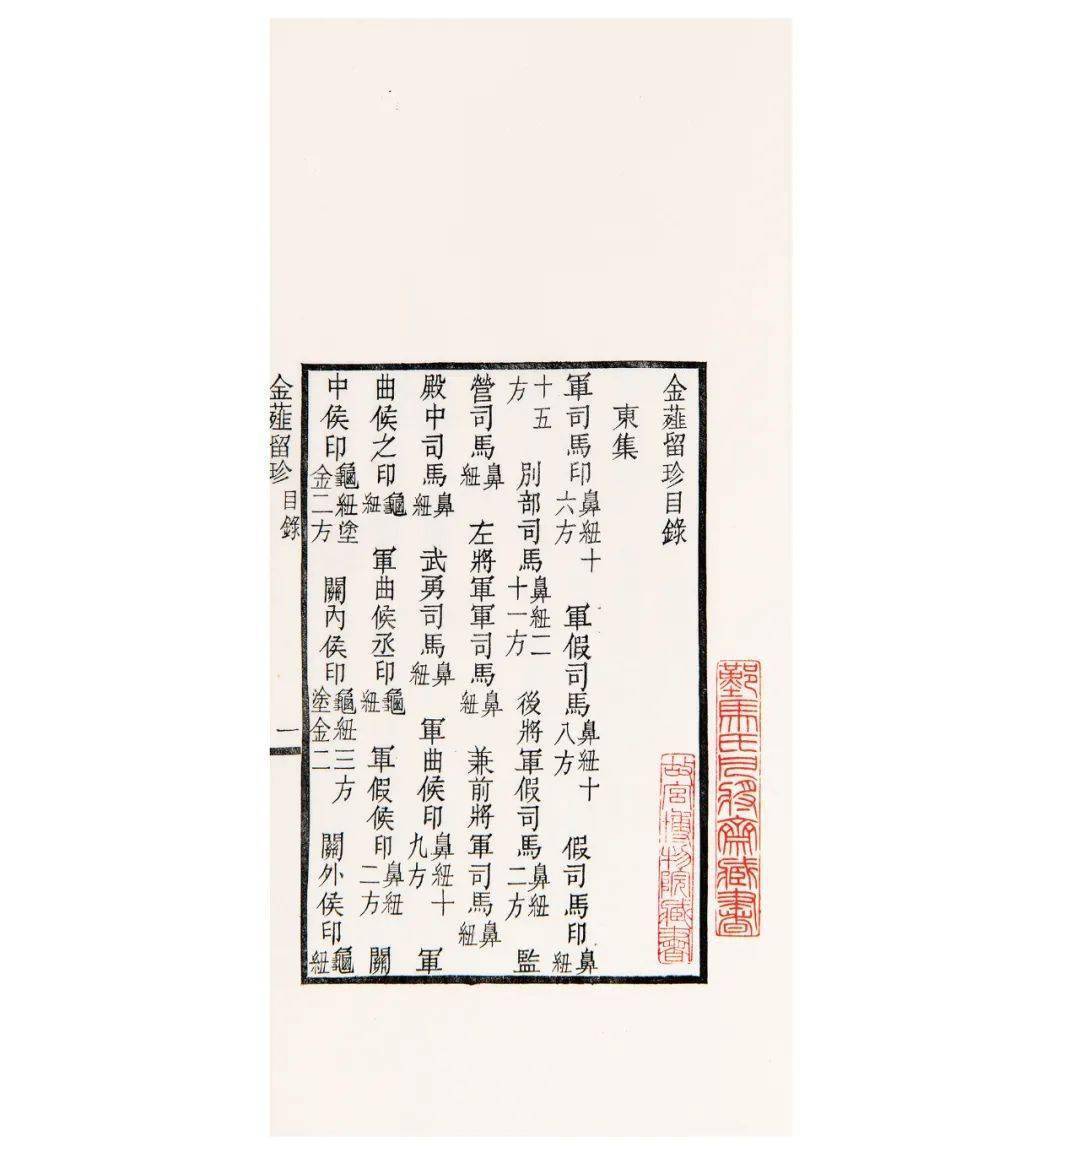 鄞馬氏凡將齋藏書
故宮博物院藏書
金薤留珍目錄
東集
軍司馬印 鼻紐十六方 軍假司馬 鼻紐十八方 假司馬印 鼻紐
十五方 別部司馬 鼻紐二十一方 後將軍假司馬 鼻紐二方 監
營司馬 鼻紐 左將軍軍司馬 鼻紐 兼前將軍司馬 鼻紐
殿中司馬 鼻紐 武勇司馬 鼻紐 軍曲候印 鼻紐十九方 軍
曲候之印 龜紐 軍曲候丞印 龜紐 軍假候印 鼻紐二方 關
中侯印 龜紐塗金二方 關內侯印 龜紐三方塗金二 關外侯印 龜紐
金薤留珍 目錄 一